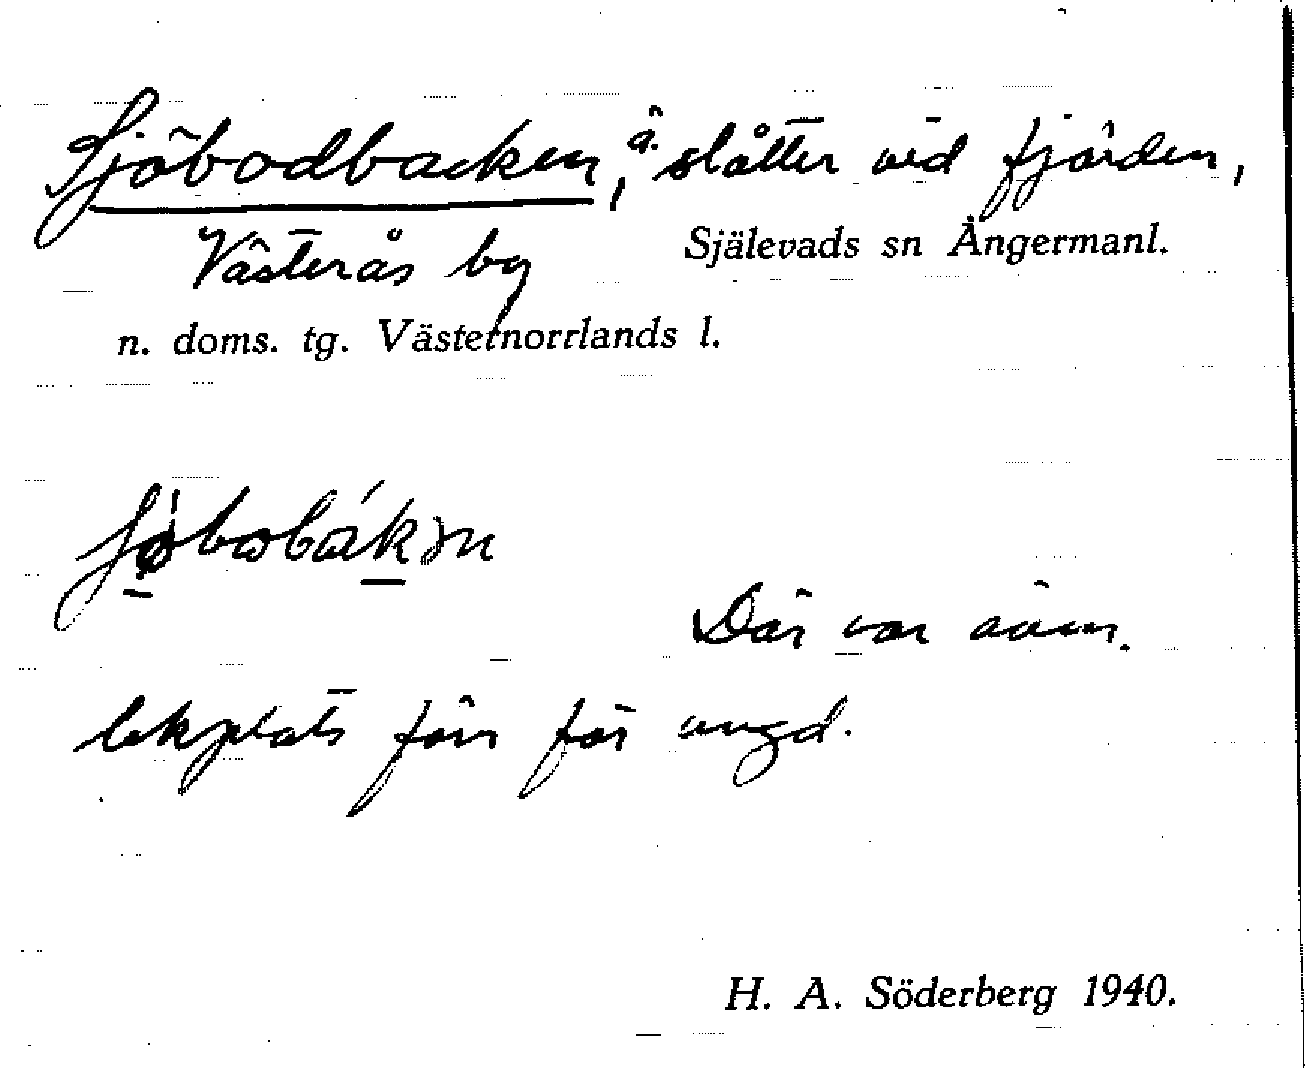 Sjöbodbacken, ä. slåtter vid fjärden,
Västerås by Själevads sn Ångermanl.
n. doms. tg. Västernorrlands l.
Där var även
lekplats förr för ungd.
H. A. Söderberg 1940.